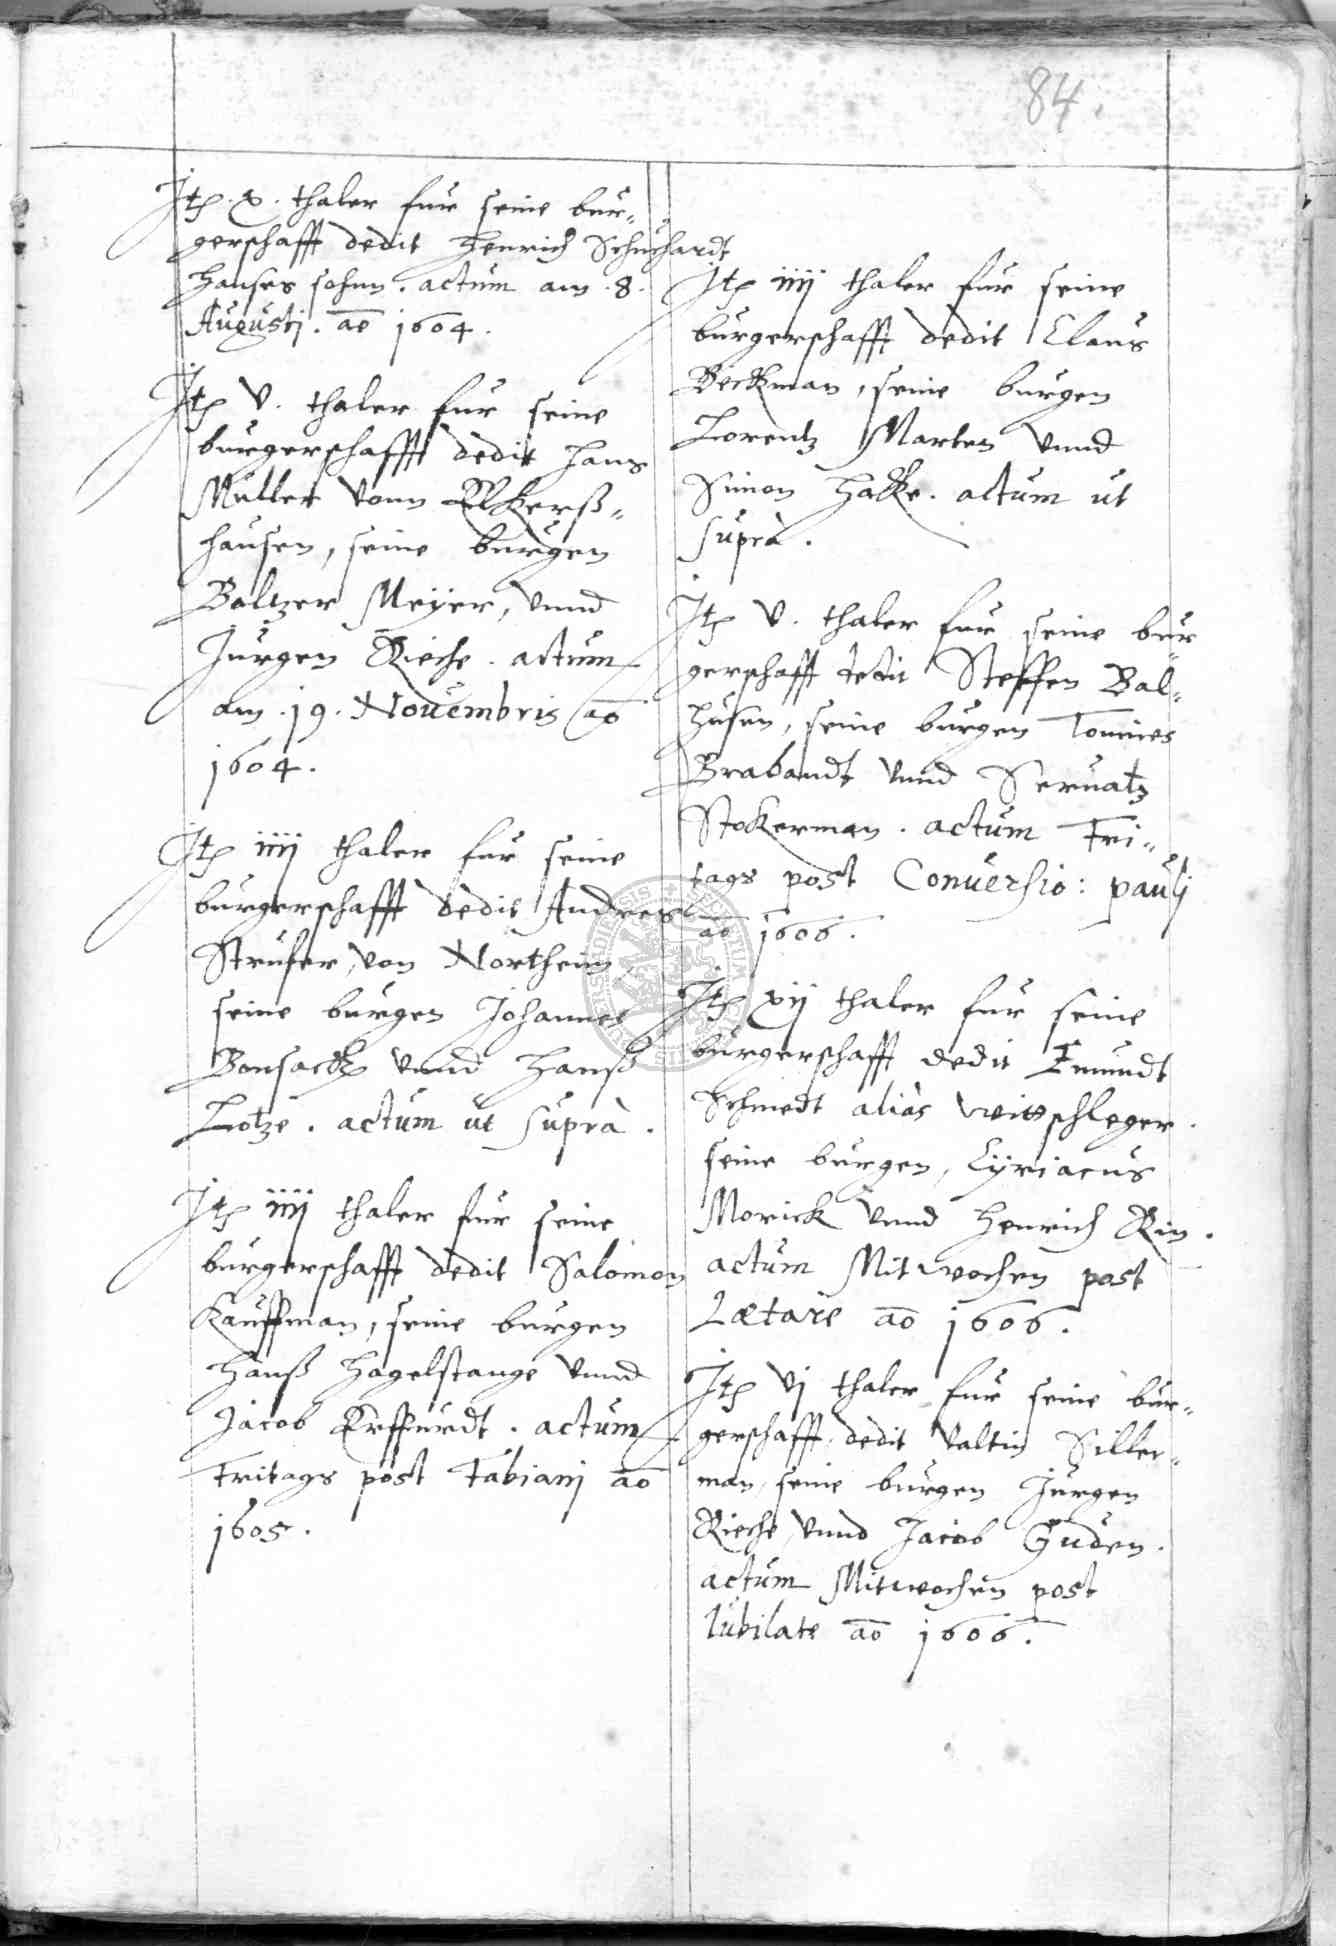 84.
Itē. x. thaler fur seine bur„
gerschafft dedit Henrich Schuchardt
Hanses sohnn. actum am .8.
Augustj. ao 1604.
Itē V. thaler fur seine
burgerschafft dedit Hans
Muller vonn Elkerß„
hausen, seine burgen
Baltzer Meÿer, vnnd
Jurgen Rieche. actum
am .19. Nouembris ao
1604.
Itē iiij thaler fur seine
burgerschafft dedit Andres
Strufer, von Northeim,
seine burgen Johannes
Bonsack vnnd Hanß
Lotze. actum ut suprà.
Itē iiij thaler fur seine
burgerschafft dedit Salomon
Kauffman, seine burgen
Hanß Hagelstange vnnd
Jacob Erffurdt. actum
Fritags post Fabianj ao
1605.
Itē iiij thaler fur seine
burgerschafft dedit Claus
Beckman, seine burgen
Lorentz Marten vnnd
Simon Hacke. actum ut
suprà.
Itē V. thaler fur seine bur„
gerschafft dedit Steffen Bal„
husen, seine burgen Tonnies
Brabandt vnnd Seruatz
Stokerman. actum Fri„
tags post Conuersio: paulj
ao 1606.
Itē xij thaler fur seine
burgerschafft dedit Emundt
Schmedt aliàs Wittschleger.
seine burgen, Cÿriacus
Morick vnnd Henrich Rin.
actum Mitwochen post
Lætare ao 1606.
Itē vj thaler fur seine bur„
gerschafft, dedit Valtin Siller„
man, seine burgen Jurgen
Rieche, vnnd Jacob Guden.
actum Mitwochen post
Iubilate ao 1606.